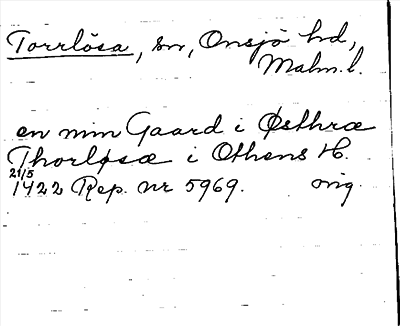 Torrlösa, sn, Onsjö hd,
Malm. l.
en min Gaard i Østhræ
Thorløsæ i Othens H.
21/5
1422 Rep. nr 5969. orig.